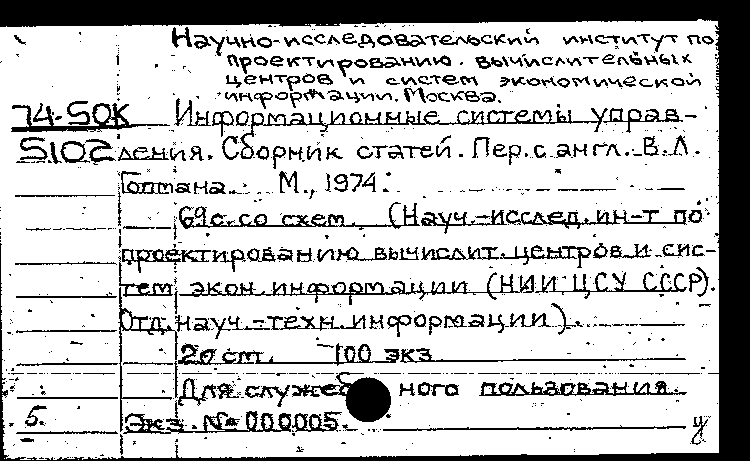 Научно-исследовательский институт по
проектированию вычислительных
центров и систем экономической
информации. Москва.
74-50К Информационные системы управ-
5102 ления. Сборник статей. Пер. с англ. В.Л.
М., 1974.
69 с. со схем. (Науч.-исслед. ин-т по
проектированию вычислит. центров и сис-
тем экон. информации (НИИ ЦСУ СССР).
Отд. науч.-техн. информации).
20 cm. 100 экз
Для служебного пользования.
5. Экз. № 000005.